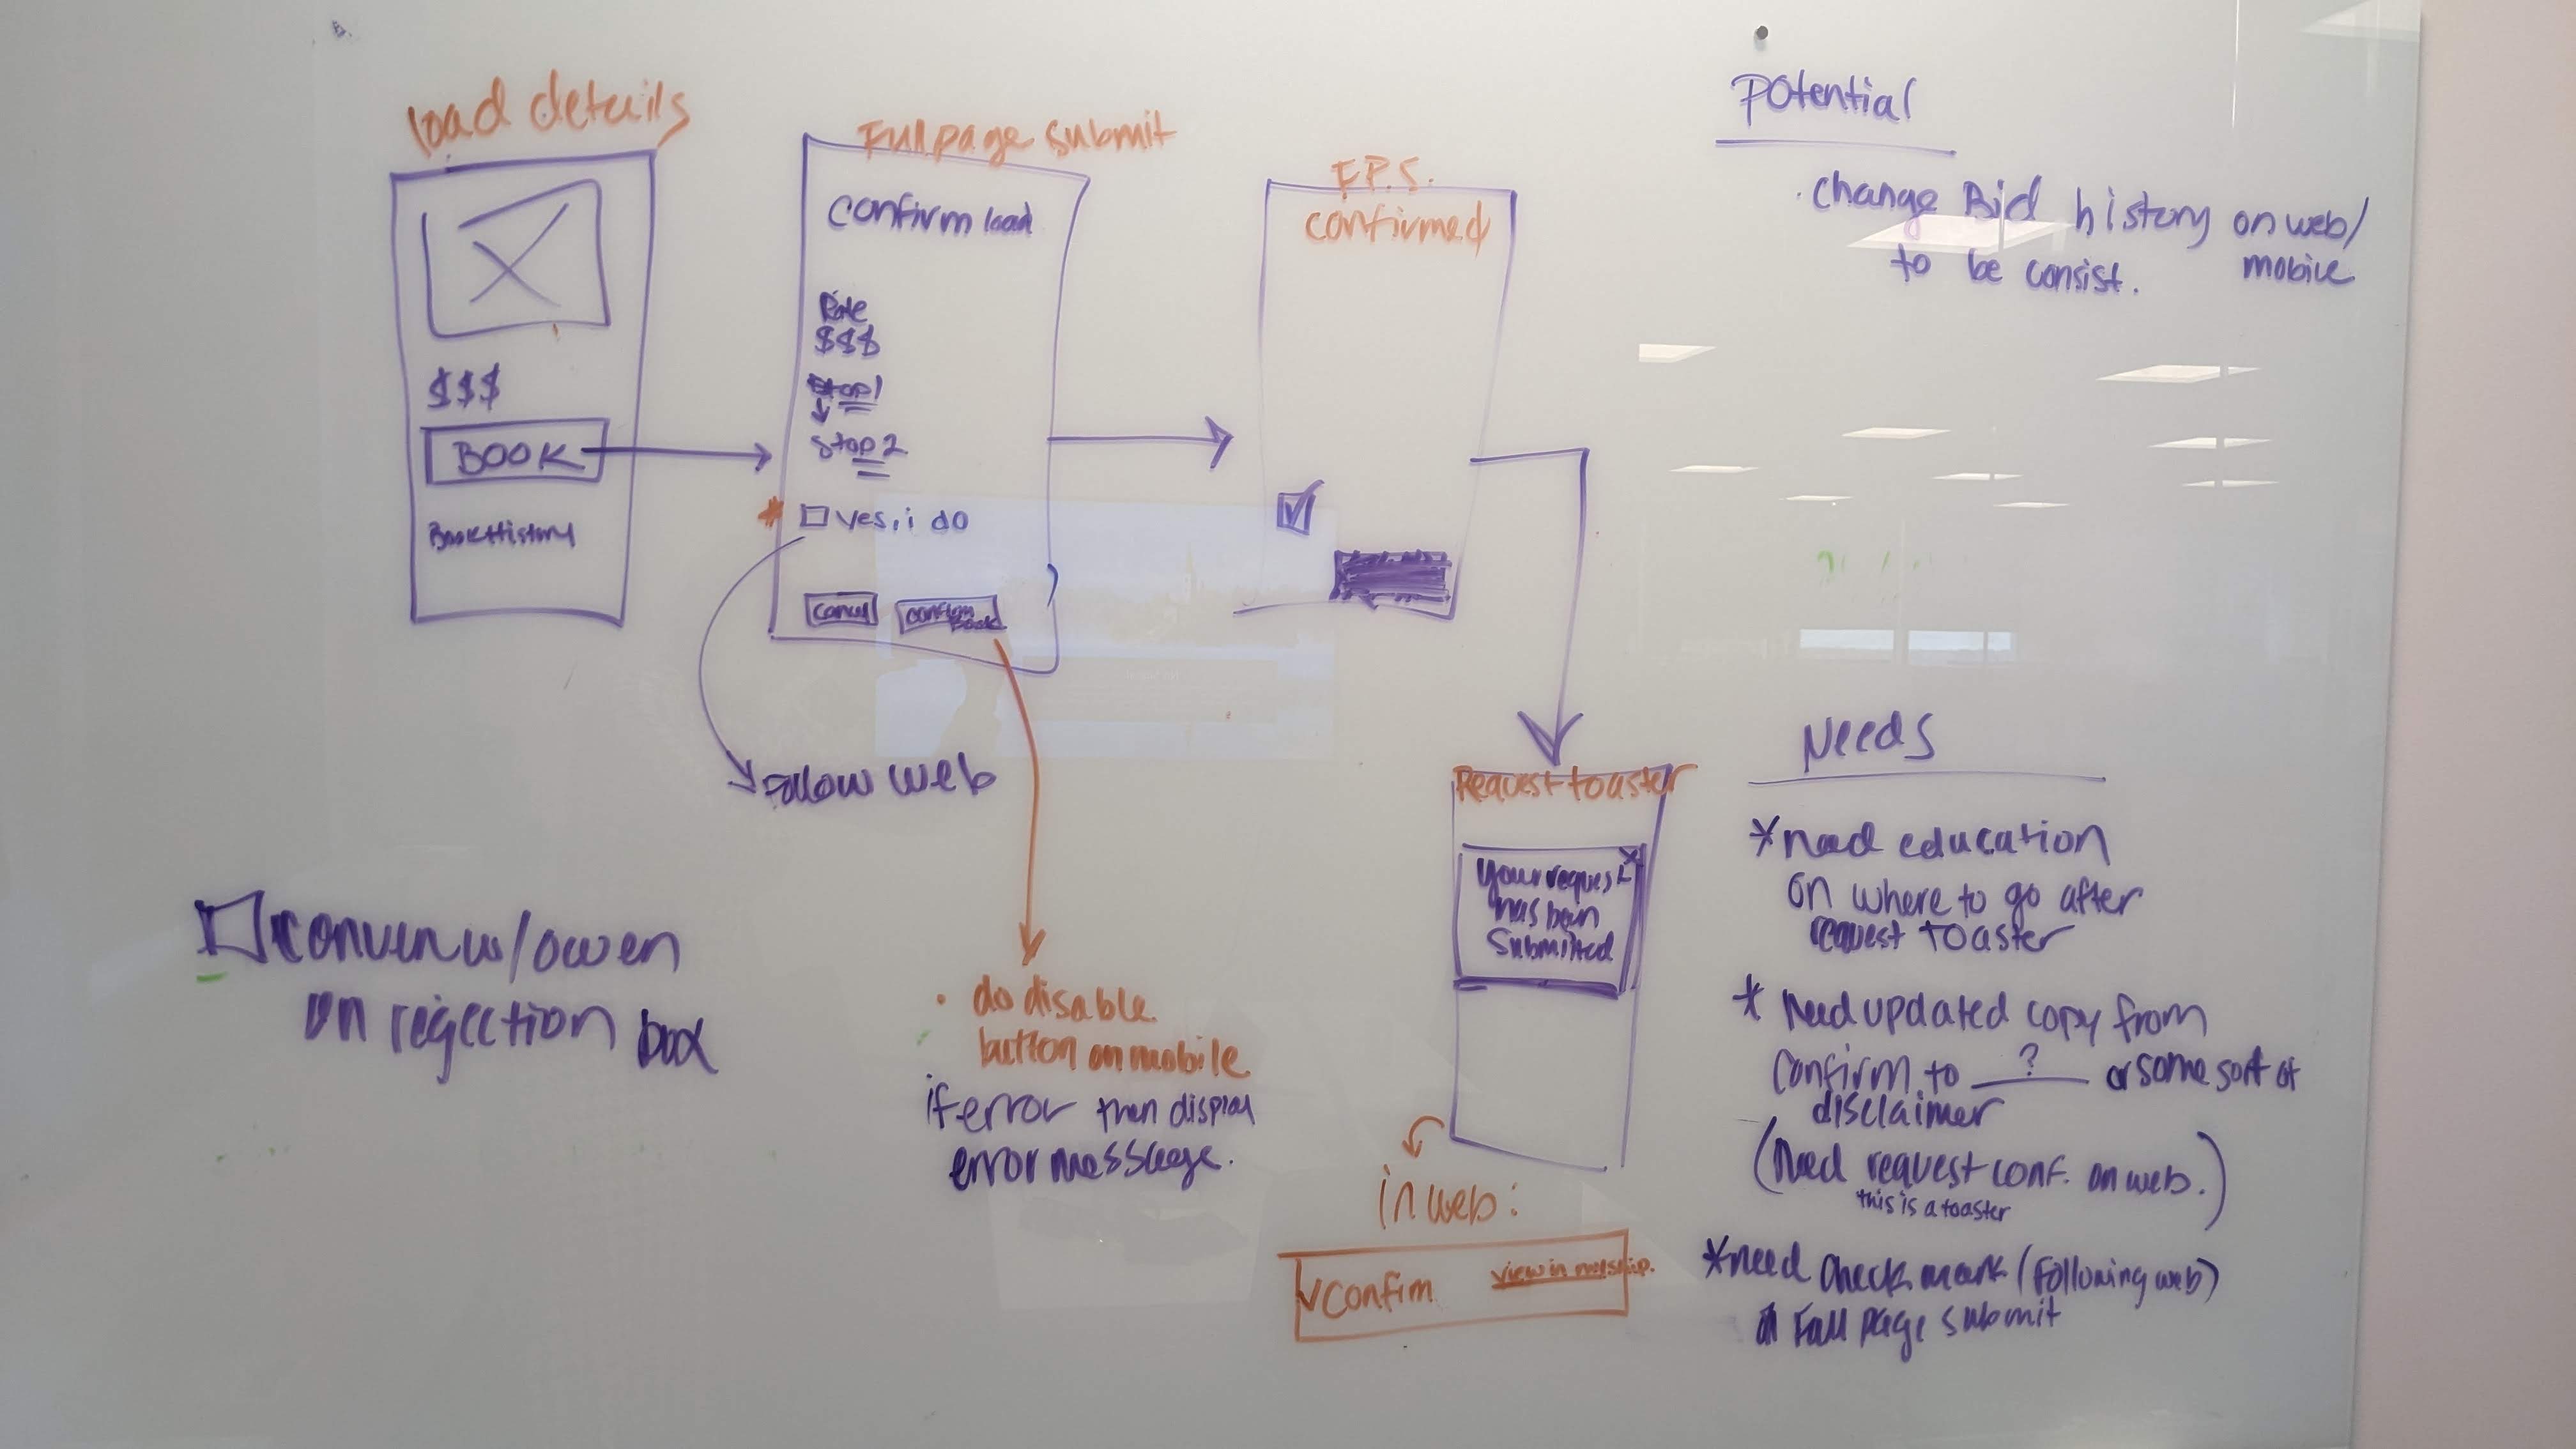 load details
$$$
BOOK
Book History
Full page submit
confirm load
Rate
$$$
Stop 1
Stop 2
yes, i do
Cancel
confirm
Book
Follow web
F.P.S.
confirmed
Request toaster
Your request
has been
Submitted
X
in web:
confim
view in myship.
• do disable
button on mobile
if error then display
error messsage.
w/owen
on rejection box
Potential
· Change Bid history on web/
mobile
to be consist.
Needs
*need education
on where to go after
request toaster
* Need updated copy from
confirm to ___?___ or some sort of
disclaimer
(Need request conf. on web.)
this is a toaster
*need check mark (following web)
Full page submit